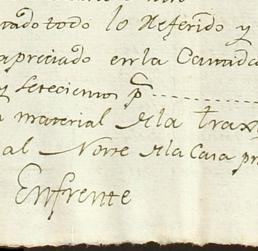 vado todo lo Referido y
apreciado en la Cantida
y setecientos p
material de la trax
al Norte de la Casa pr
Enfrente